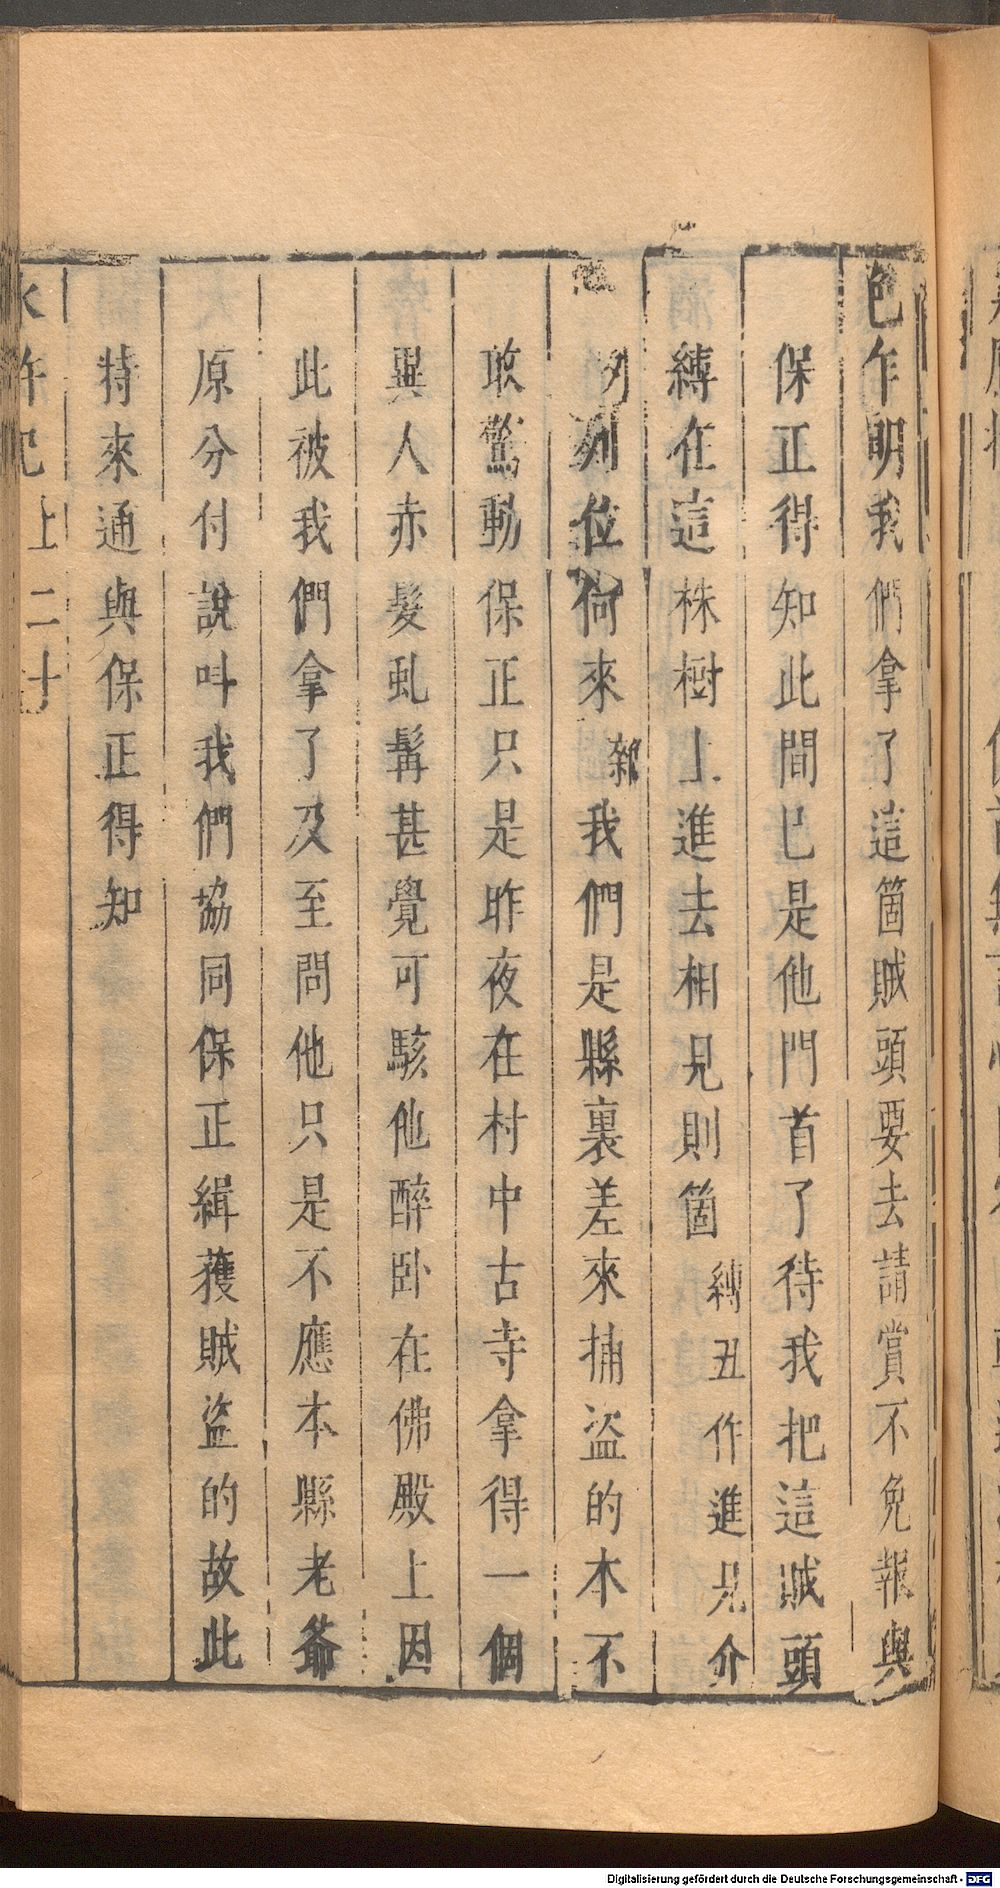 色乍明我們拿了這箇賊頭要去請賞不免報與
保正得知此間已是他門首了待我把這賊頭
縳在這株樹上進去相見則箇縳丑作進見介
列位何來雜我們是縣裏差來捕盗的本不
敢驚動保正只是昨夜在村中古寺拿得一個
異人赤髮虬髯甚覺可駭他醉卧在佛殿上因
此被我們拿了及至問他只是不應本縣老爺
原分付說叫我們協同保正緝獲賊盗的故此
特來通與保正得知
水滸記上二十
Digitalisierung gefördert durch die Deutsche Forschungsgemeinschaft - DFG